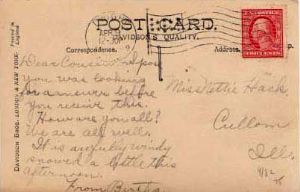 POST CARD.
DAVIDSON'S QUALITY.
Correspondence.
Address.
Printed in England
DAVIDSON BROS. LONDON & NEW YORK.
APR
Dear Cousin: I
you was looking
an answer before
you receive this.
How are you all?
We are all well.
It is awfully windy
snowed a little this
afternoon.
From Bertha.
Miss Dettie Hack
Cullom
Ill.